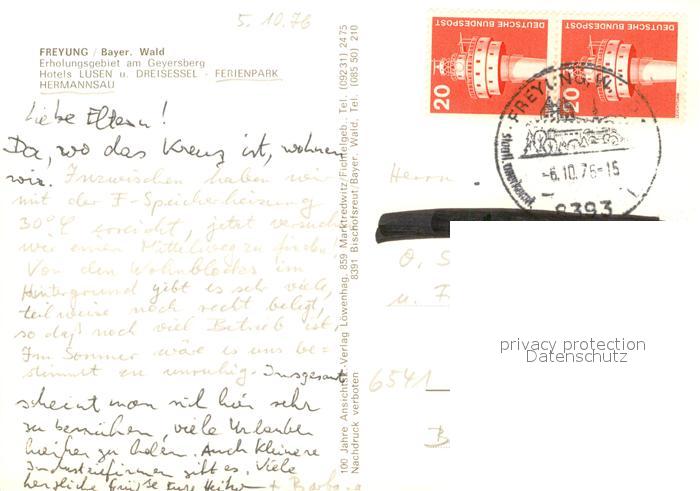 5.10.76
FREYUNG / Bayer. Wald
Erholungsgebiet am Geyersberg
Hotels LUSEN u. DREISESSEL - FERIENPARK
HERMANNSAU
Liebe Eltern!
Da, wo das Kreuz ist, wohnen
wir. Inzwischen haben wir
mit der F-Speicherheizung
30°C erreicht, jetzt versuchen
wir einen Mittelweg zu finden!
Von den Wohnblocks im
Hintergrund gibt es sehr viele,
teilweise noch recht belegt,
so daß noch viel Betrieb ist.
Im Sommer wäre es uns be=
stimmt zu unruhig. Insgesamt
scheint man sich hier sehr
zu bemühen, viele Urlauber
hierher zu holen. Auch kleinere
Industriefirmen gibt es. Viele
herzliche Grüße Eure Heiko + Barbara
100 Jahre Ansichtsk.-Verlag Löwenhag, 859 Marktredwitz/Fichtelgeb., Tel. (09231) 2475
Nachdruck verboten 8391 Bischofsreut/Bayer. Wald, Tel. (085 50) 210
DEUTSCHE BUNDESPOST
20
DEUTSCHE BUNDESPOST
20
FREYUNG
-6.10.76-15
8393
staatl. anerkannt
Herrn
O. S
u. F
6541
B
privacy protection
Datenschutz